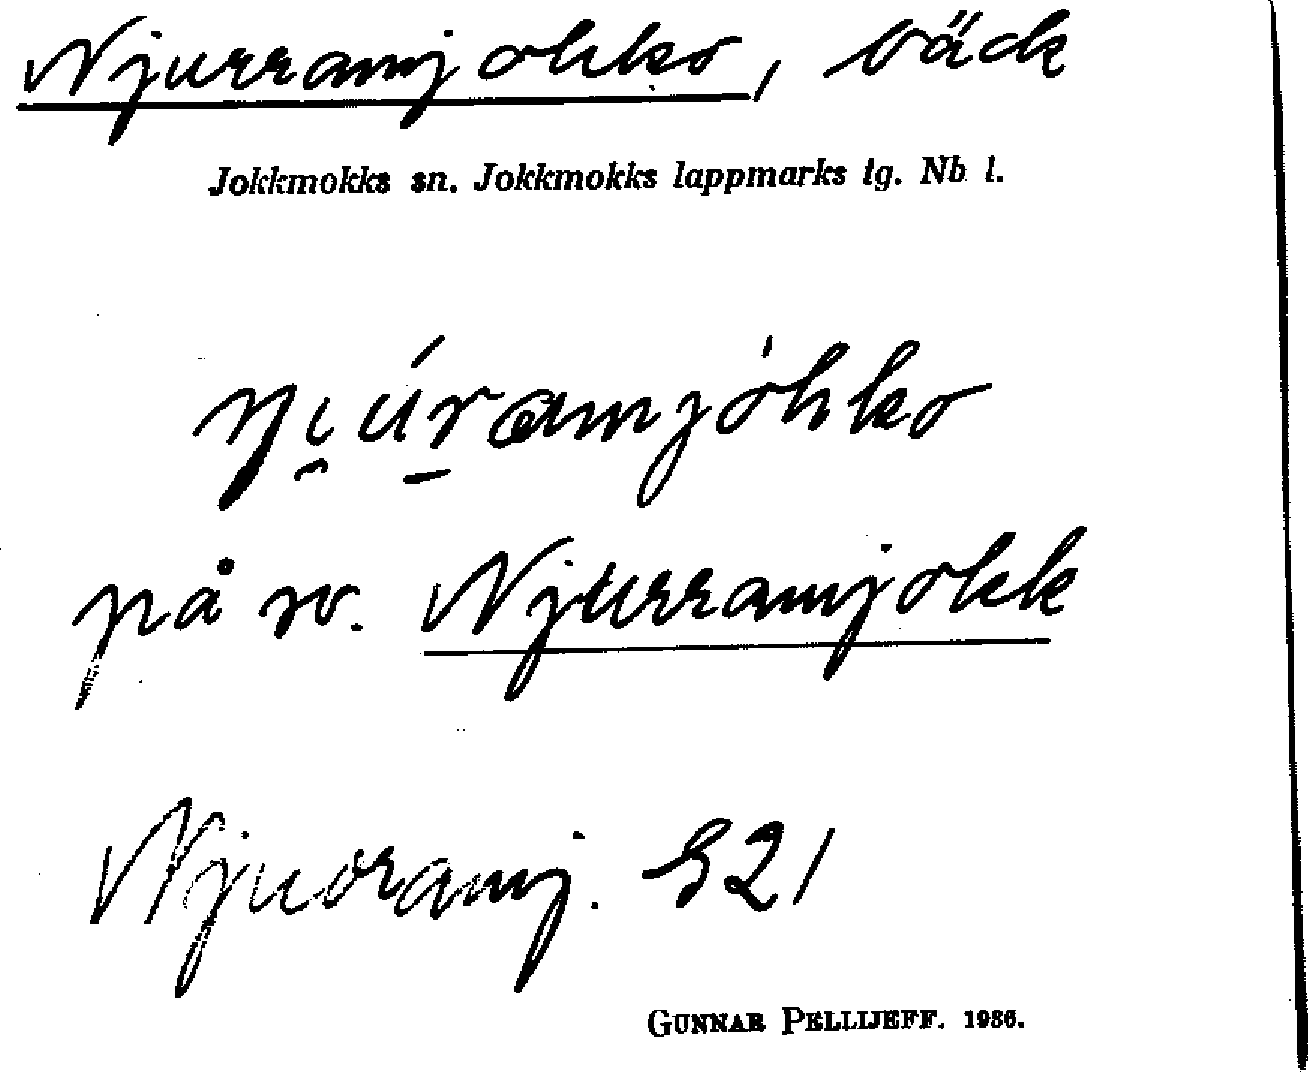 Njurramjohko, bäck
Jokkmokks sn. Jokkmokks lappmarks tg. Nb l.
ŋi̯ú̱ramjòhko
på sv. Njurramjokk
Njuoramj. S21
GUNNAR PELLIJEFF. 1936.